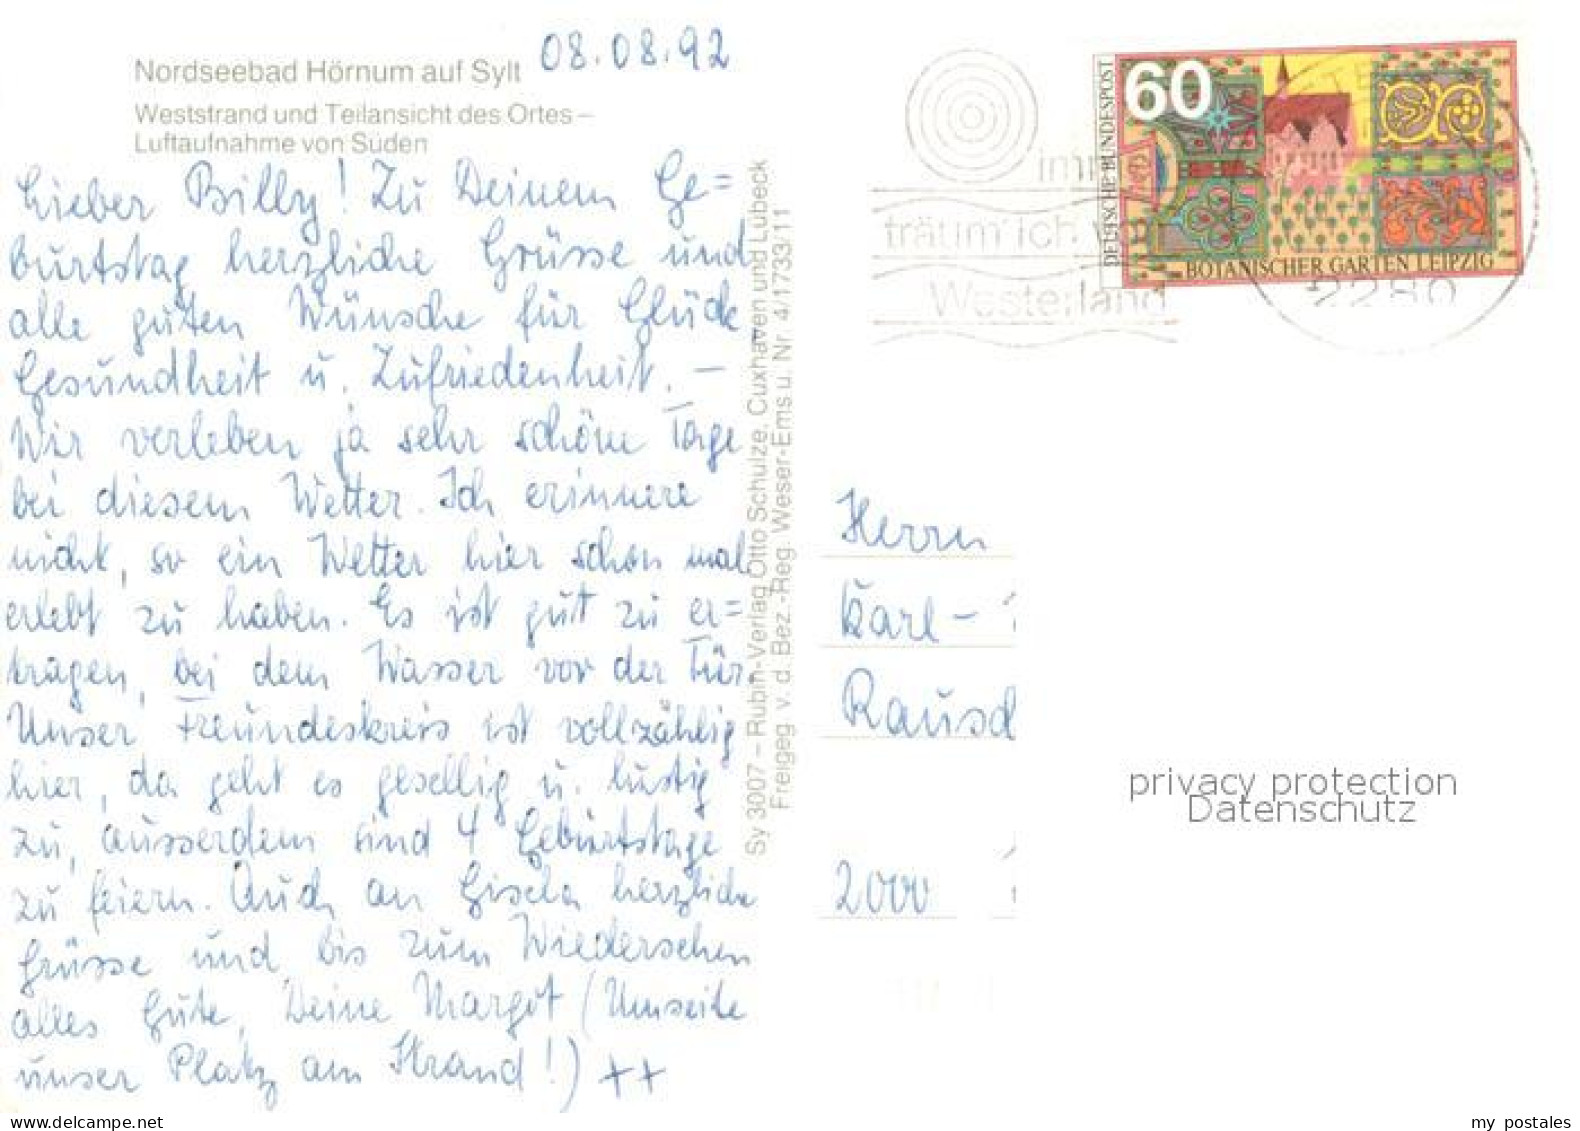 08.08.92
Nordseebad Hörnum auf Sylt
Weststrand und Teilansicht des Ortes –
Luftaufnahme von Süden
Lieber Billy! Zu Deinem Ge=
burtstag herzliche Grüsse und
alle guten Wünsche für Glück
Gesundheit u. Zufriedenheit. –
Wir verleben ja sehr schöne Tage
bei diesem Wetter. Ich erinnere
nicht, so ein Wetter hier schon mal
erlebt zu haben. Es ist gut zu er=
tragen, bei dem Wasser vor der Tür.
Unser Freundeskreis ist vollzählig
hier, da geht es gesellig u. lustig
zu, ausserdem sind 4 Geburtstage
zu feiern. Auch an Gisela herzliche
Grüsse und bis zum Wiedersehen
alles Gute, Deine Margot (Umseite
unser Platz am Strand!) ++
Sy 3007 – Rubin-Verlag Otto Schulze, Cuxhaven und Lübeck
Freigeg. v. d. Bez.-Reg. Weser-Ems u. Nr. 4/1733/11
immer
träum' ich von
Westerland
DEUTSCHE BUNDESPOST
60
BOTANISCHER GARTEN LEIPZIG
2280
Herrn
Karl-
Rausch
2000
privacy protection
Datenschutz
my postales